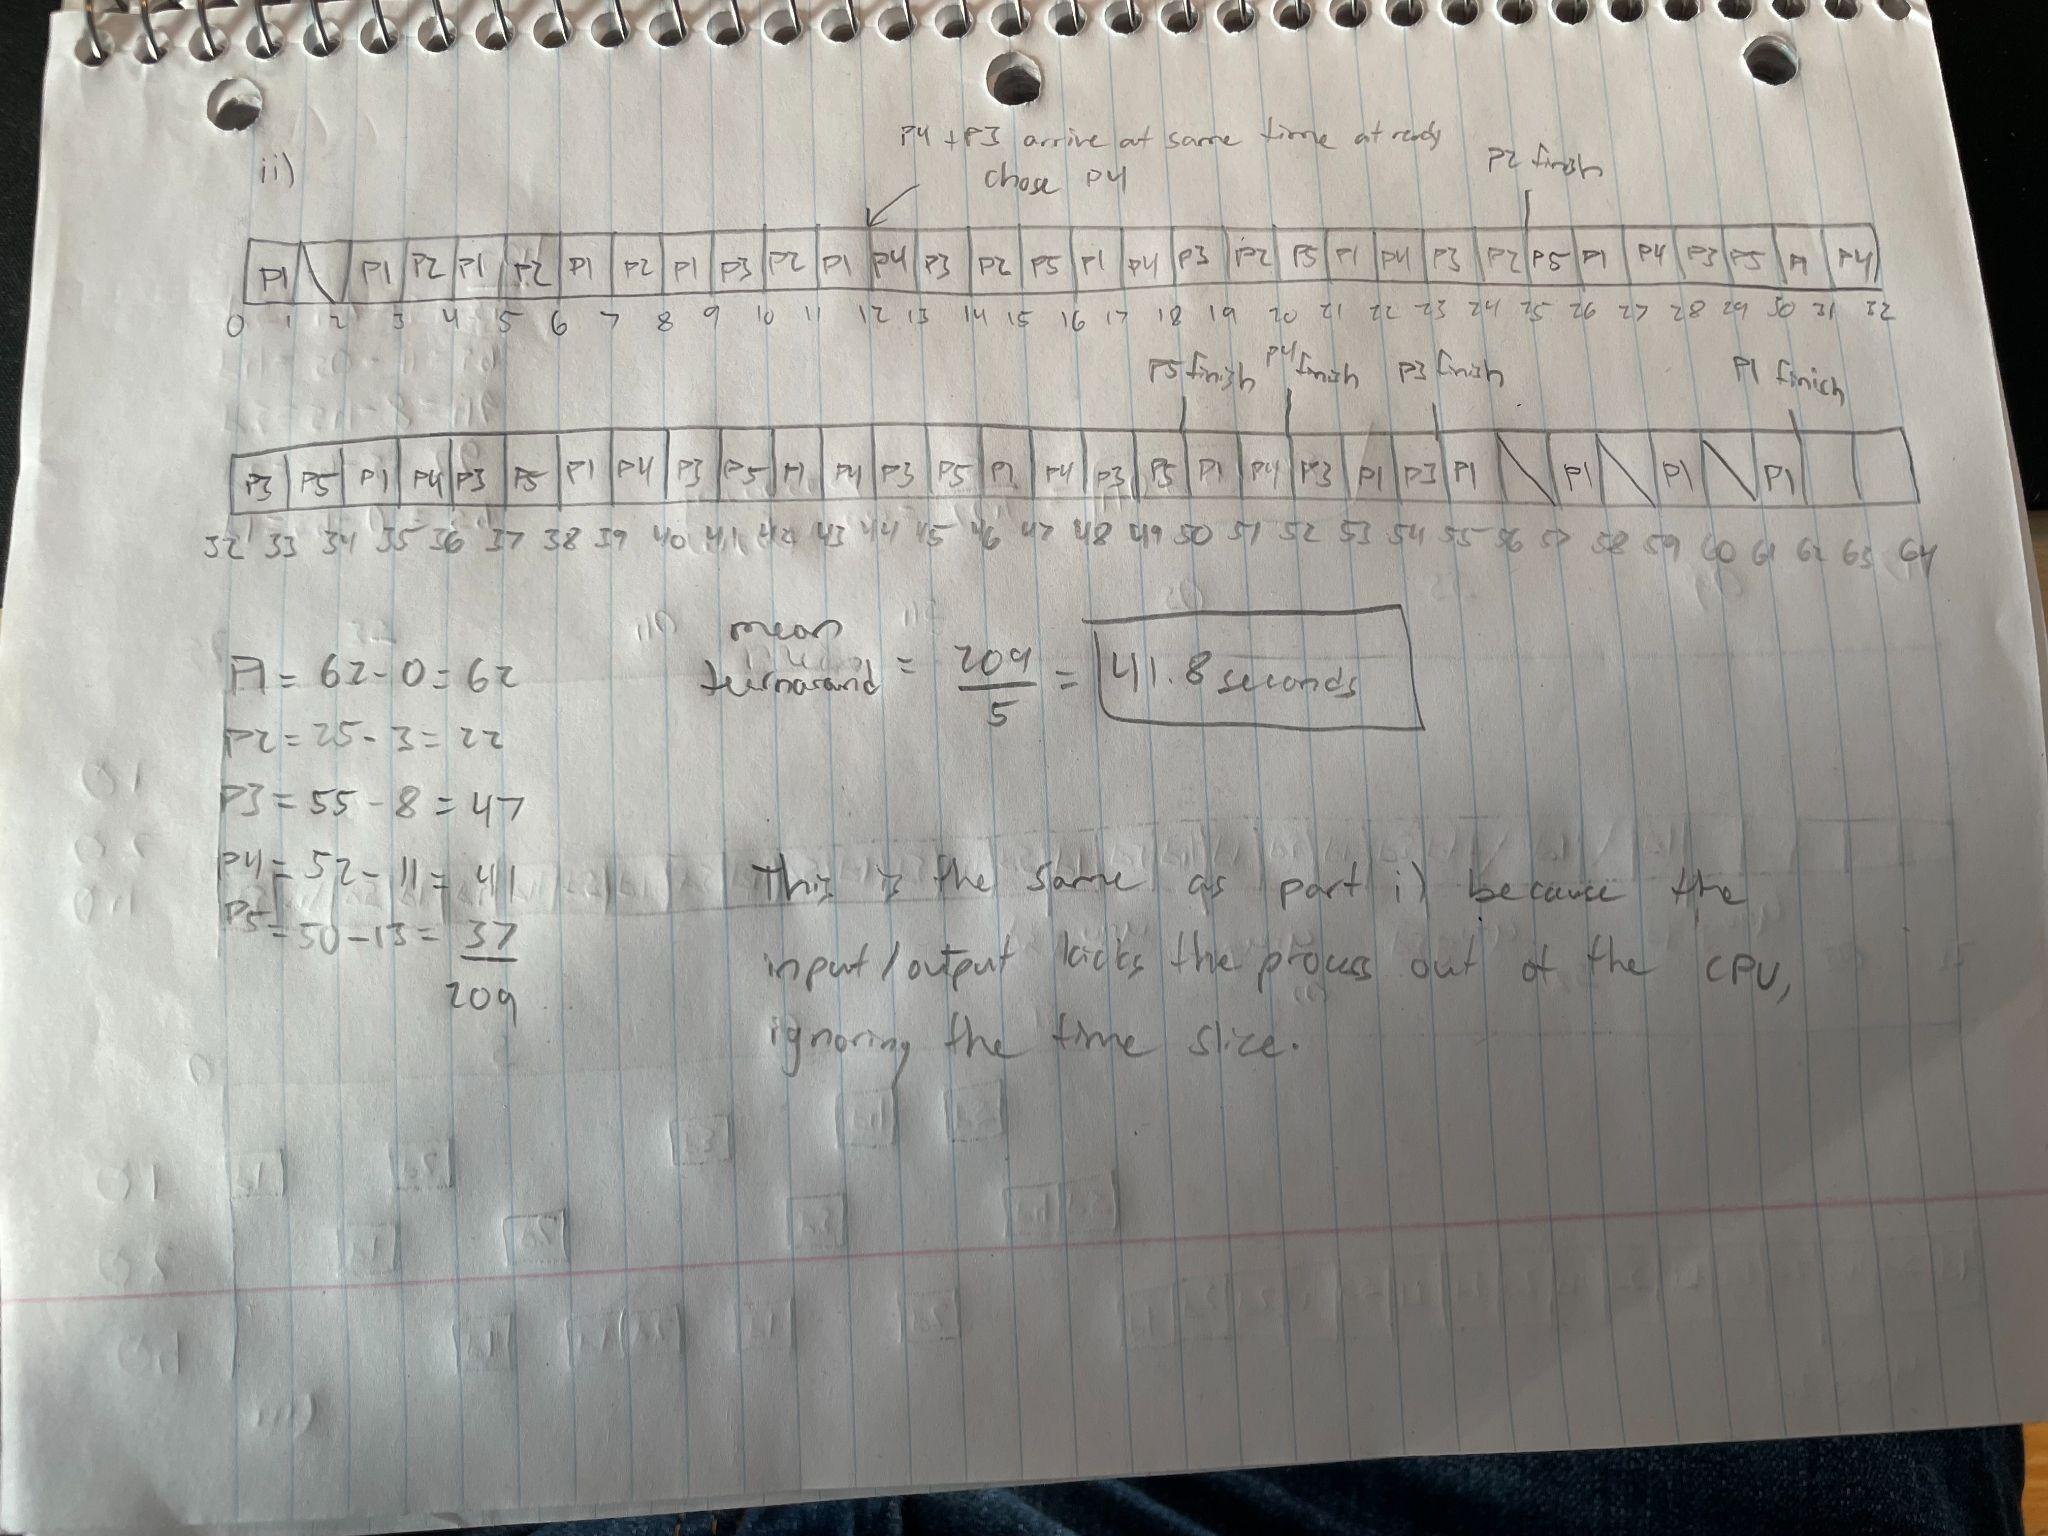 P4 + P3 arrive at same time at ready
chose P4
P2 finish
ii)
P1 P1 P2 P1 P2 P1 P2 P1 P3 P2 P1 P4 P3 P2 P5 P1 P4 P3 P2 P5 P1 P4 P3 P2 P5 P1 P4 P3 P5 P1 P4
0 1 2 3 4 5 6 7 8 9 10 11 12 13 14 15 16 17 18 19 20 21 22 23 24 25 26 27 28 29 30 31 32
P5 finish P4 finish P3 finish P1 finish
P3 P5 P1 P4 P3 P5 P1 P4 P3 P5 P1 P4 P3 P5 P1 P4 P3 P5 P1 P4 P3 P1 P3 P1 P1 P1 P1
32 33 34 35 36 37 38 39 40 41 42 43 44 45 46 47 48 49 50 51 52 53 54 55 56 57 58 59 60 61 62 63 64
P1 = 62 - 0 = 62
mean turnaround = 209/5 = 41.8 seconds
P2 = 25 - 3 = 22
P3 = 55 - 8 = 47
P4 = 52 - 11 = 41
P5 = 50 - 13 = 37
209
This is the same as part i) because the
input/output kicks the process out of the CPU,
ignoring the time slice.